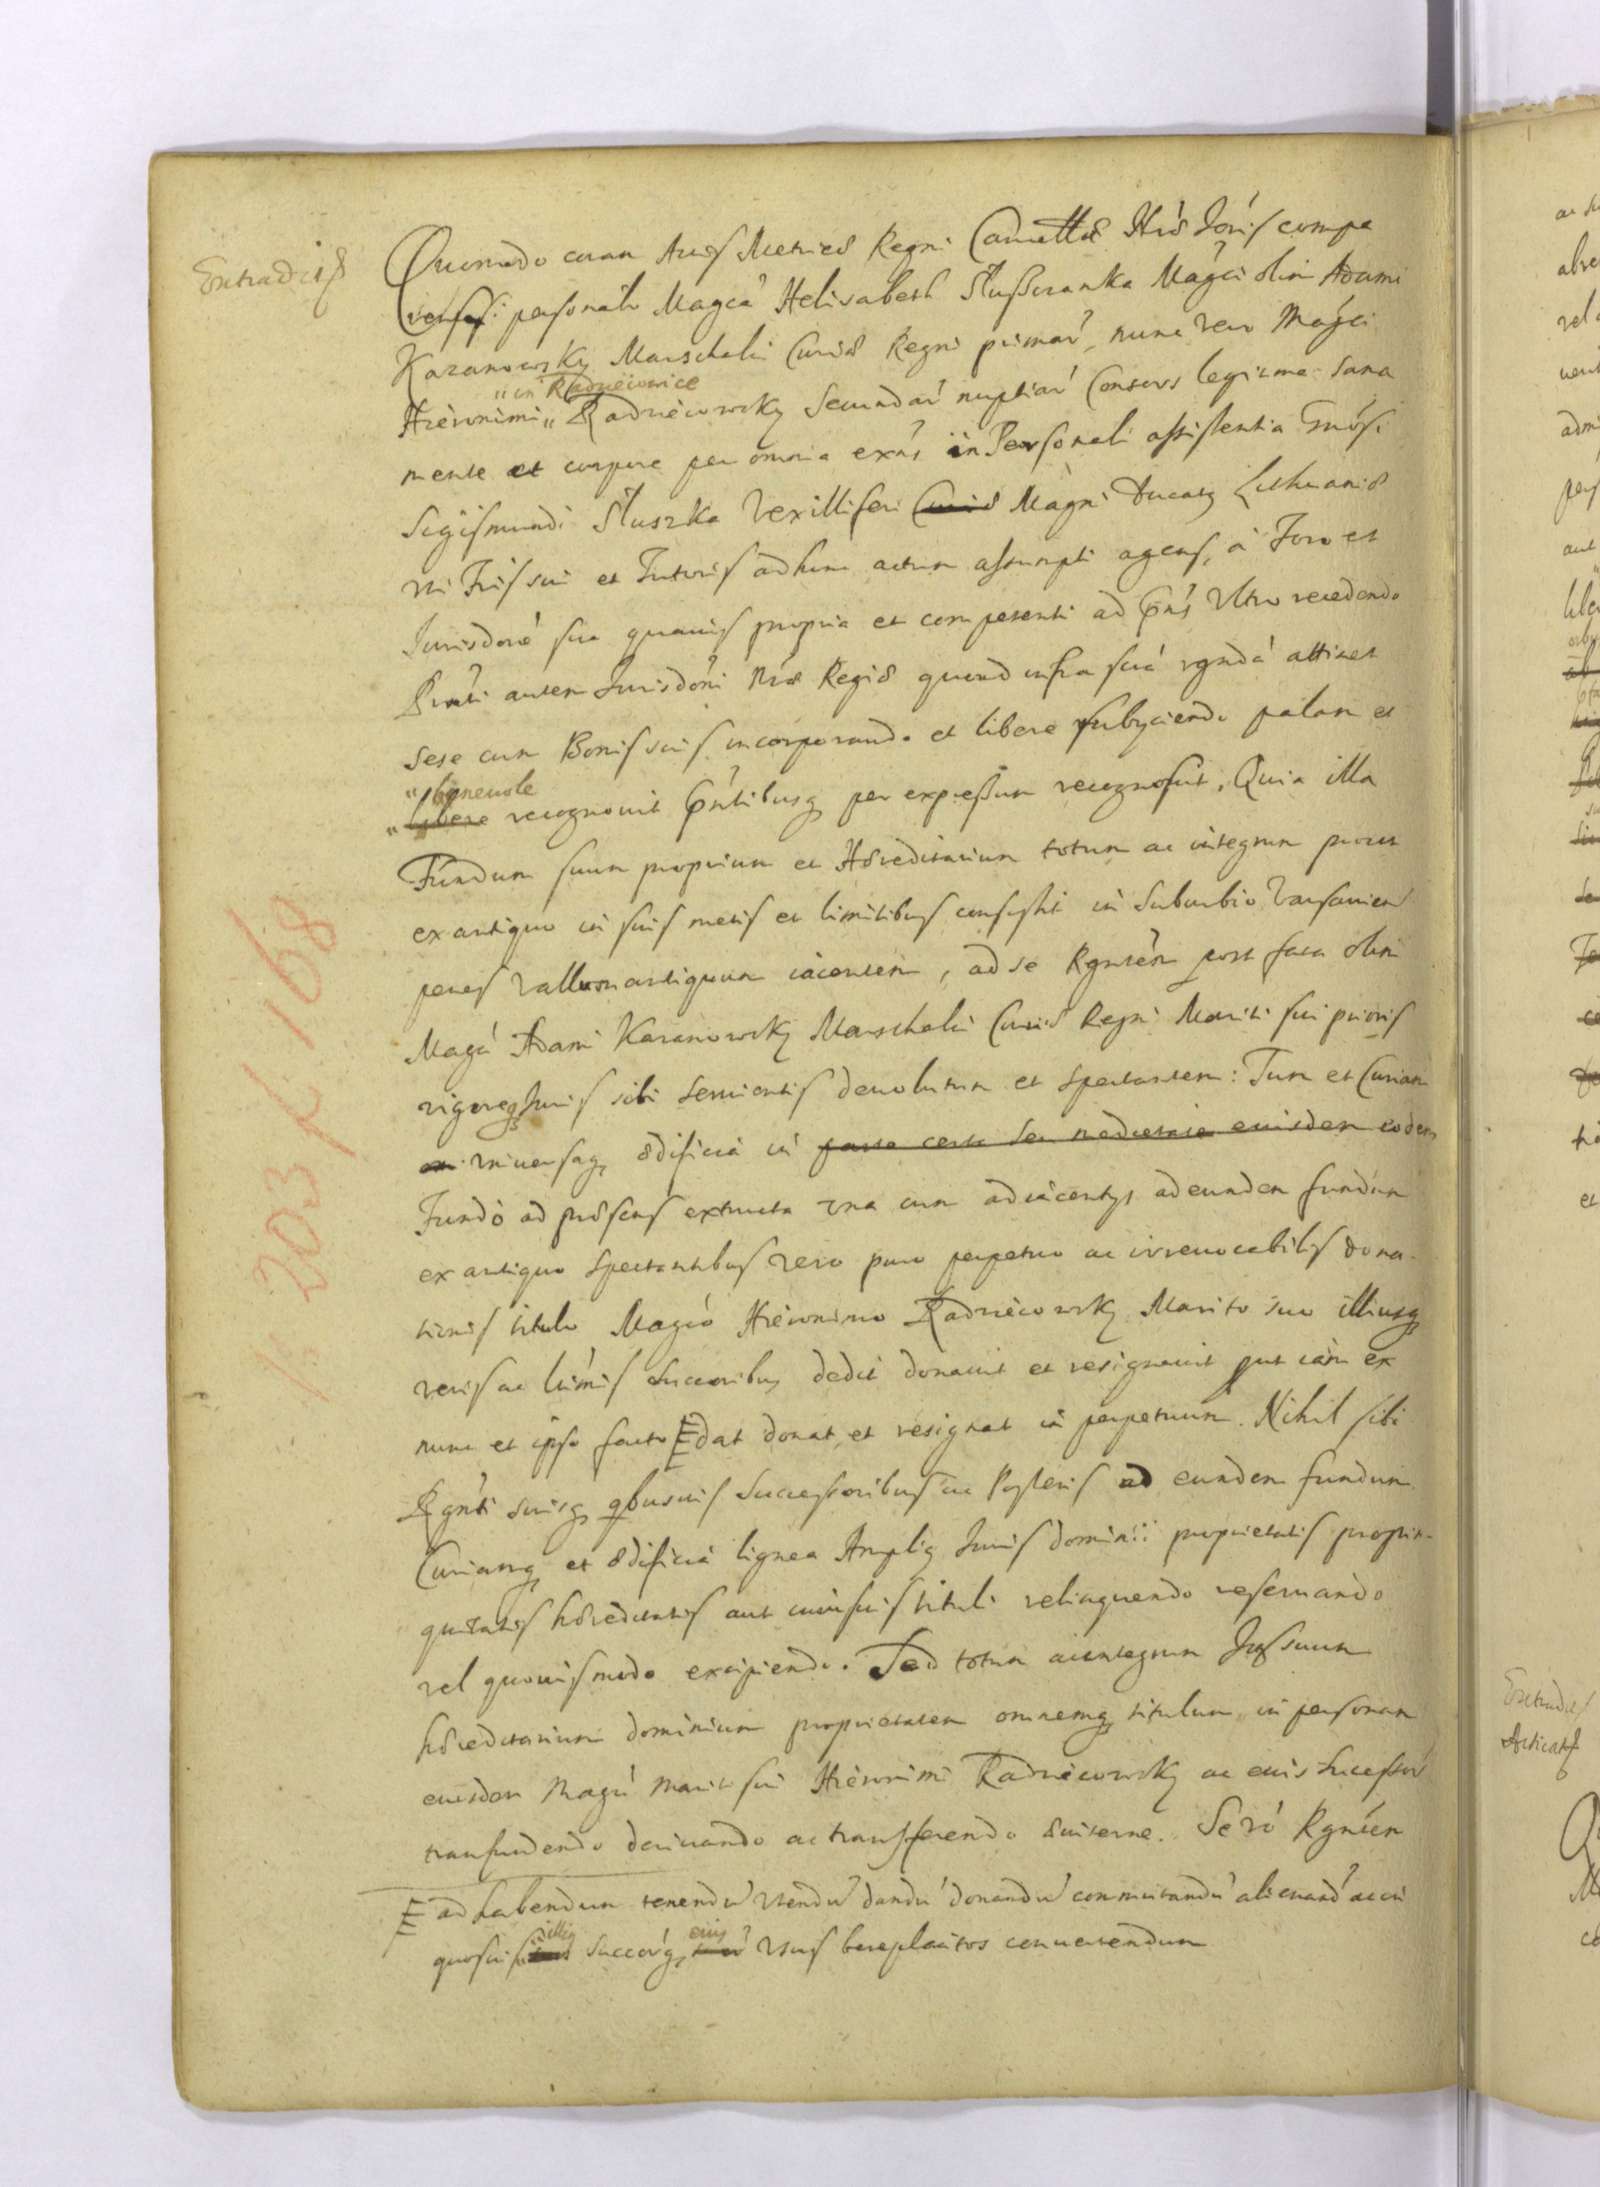 Extradit
Quomodo coram Actis Metrices Regni Cancellae Nrae Joris compa
rens personalr Magca Helisabeth Słuszczanka Magci olim Adami
Kazanowsky Marschalci Curiae Regni primar, nunc vero Magci
"in Radzieiowice
Hieronimi " Radzieiowsky secundar nuptiar Consors legitima sana
mente et corpore per omnia exns in Personali assistentia Gnosi
Sigismundi Słuszka Vexilliferi Curiae Magni Ducatq Lithuaniae
Fris sui et Tutoris ad hunc actum assumpti agens, à Foro et
Jurisdone sua quauis propria et competenti ad Pns Vltro recedendo
autem Jurisdoni Nrae Regiae quoad infra scra rgnda attinet
sese cum Bonis suis incorporando et libere subyciendo palam et
" beneuole
" libere recognouit Pntibusq per expressum recognoscit, Quia illa
Fundum suum proprium et Haereditarium totum ac integrum prout
ex antiquo in suis metis et limitibus consistit in Suburbio Varsauien
penes vallum antiquum iacentem, ad se Rgntem post fata olim
Magci Adami Kazanowsky Marschalci Curiae Regni Mariti sui prioris
vigoreq Juris sibi seruientis deuolutum et spectantem: Tum et Curiam
vniuersaq aedificia in parte certa seu medietate eiusdem eodem
Fundo ad praesens extructa vna cum adiacentys ad eundem fundum
ex antiquo spectantibus vero puro perpetuo ac irreuocabilis dona-
tionis titulo Magco Hieronimo Radzieiowsky Marito suo illiusq
veris ac ltimis succoribus dedit donauit et resignauit put iam ex
nunc et ipso facto E dat donat et resignat in perpetuum. Nihil sibi
Rgnti suisq qbusuis Successoribus ac Posteris ad eundem fundum
Curiamq et aedificia lignea Amplig Juris dominii proprietatis propin-
quitatis haereditatis aut cuiusuis tituli relinquendo reseruando
vel quouismodo excipiendo. Sed totum ac integrum Jus suum
haereditarium dominium proprietatem omnemq titulum in personam
eiusdem Magci Mariti sui Hieronimi Radzieiowsky ac eius successor
transfundendo deriuando ac transferendo euiterne. Se vo Rgntem
E ad habendum tenendu vtendu dandu donandu commutandu alienand ac in
"illiq eiuq
quosuis suos succorq suor vsus beneplacitos conuertendum
1. 203 k 168
Extradit
Acticat